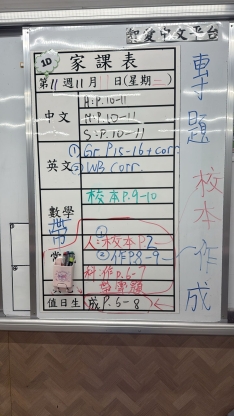 智愛中文平台
1D
家課表
第11週11月 日(星期二)
中文
H:P.10-11
H:P.10-11
S:P.10-11
英文
① Gr P15-16+corr
② WB corr.
數學
校本P.9-10
帶
常
①
人:校本P.2
②作P.8-9
科:作P.6-7
值日生
成P.5-8
專題
校本
作
成